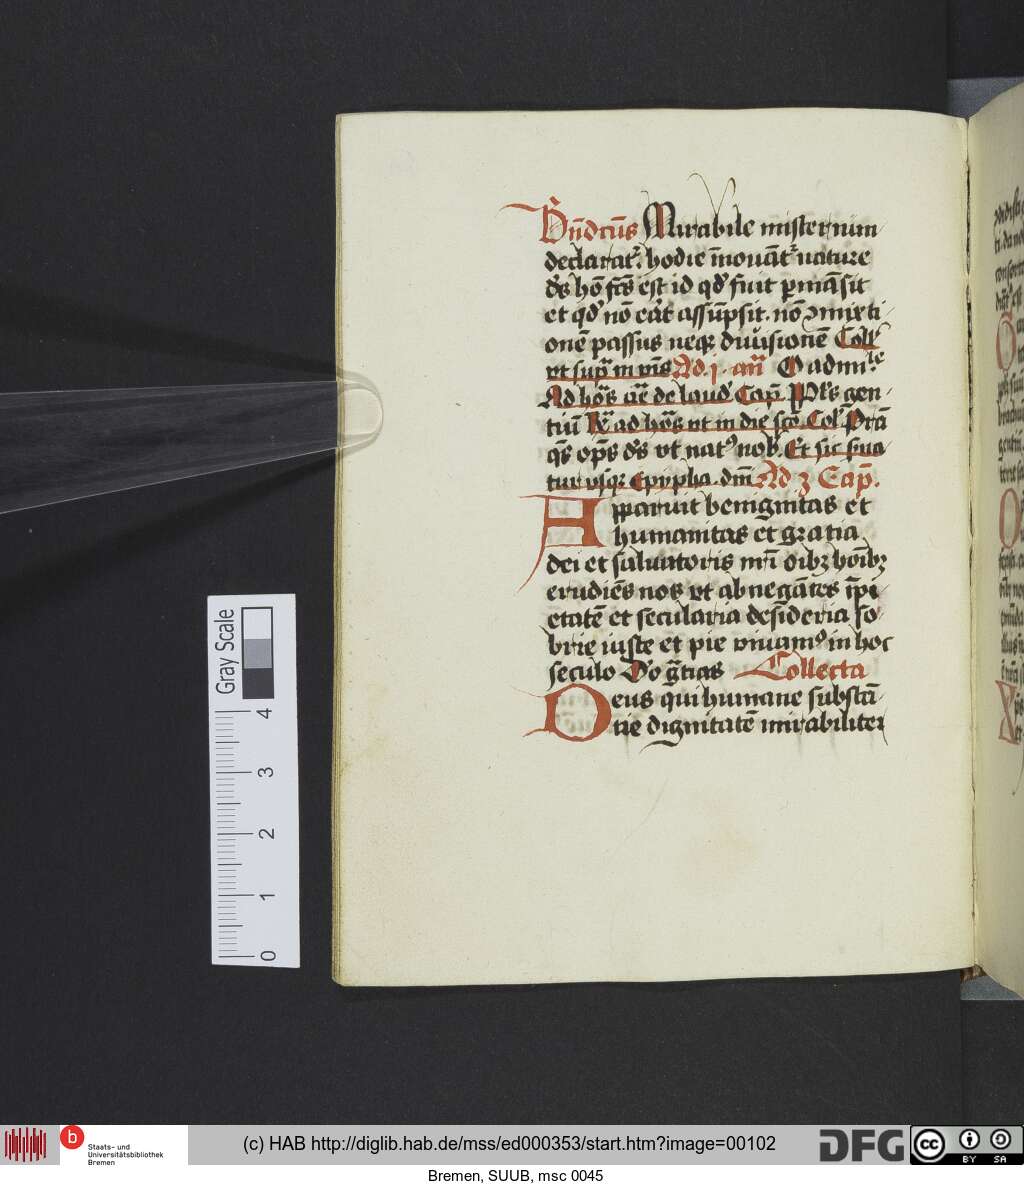 Bn̄dctūs Mirabile misterium
declarat᷑. hodie īnouāt᷑ nature
dʼs hō fcs̄ est id qd̓ fuit ꝑmāsit
et qd̓ nō eāt assūpsit. nō ꝯmixti
onē passus neqꝫ diuisionē Coll᷑
vt sup̄ in vīs Ad. j. an̄ O admi.le
Ad hōs āē de laud̓ Cap̄. Pp̄ls gen
tiū R̄ ad hōs vt in die scō Col̓ Prā
qs̄ op̄s ds̄ vt natꝰ nob̓. Et sic sua
tur vsqꝫ epypha. dm̄ Ad ʒ Cap̄.
Apparuit benignitas et
humanitas et gratia
dei et saluatoris nr̄i oībꝫ hoībꝫ
erudiēs nos vt abnegātes īpi
etatē et secularia desideria so
brie iuste et pie viuamꝰ in hoc
seculo Do gr̄tias Collecta
Deus qui humane substā
tie dignitatē mirabiliter
Gray Scale
4
3
2
1
0
b
Staats- und
Universitätsbibliothek
Bremen
(c) HAB http://diglib.hab.de/mss/ed000353/start.htm?image=00102
DFG
cc
BY SA
Bremen, SUUB, msc 0045